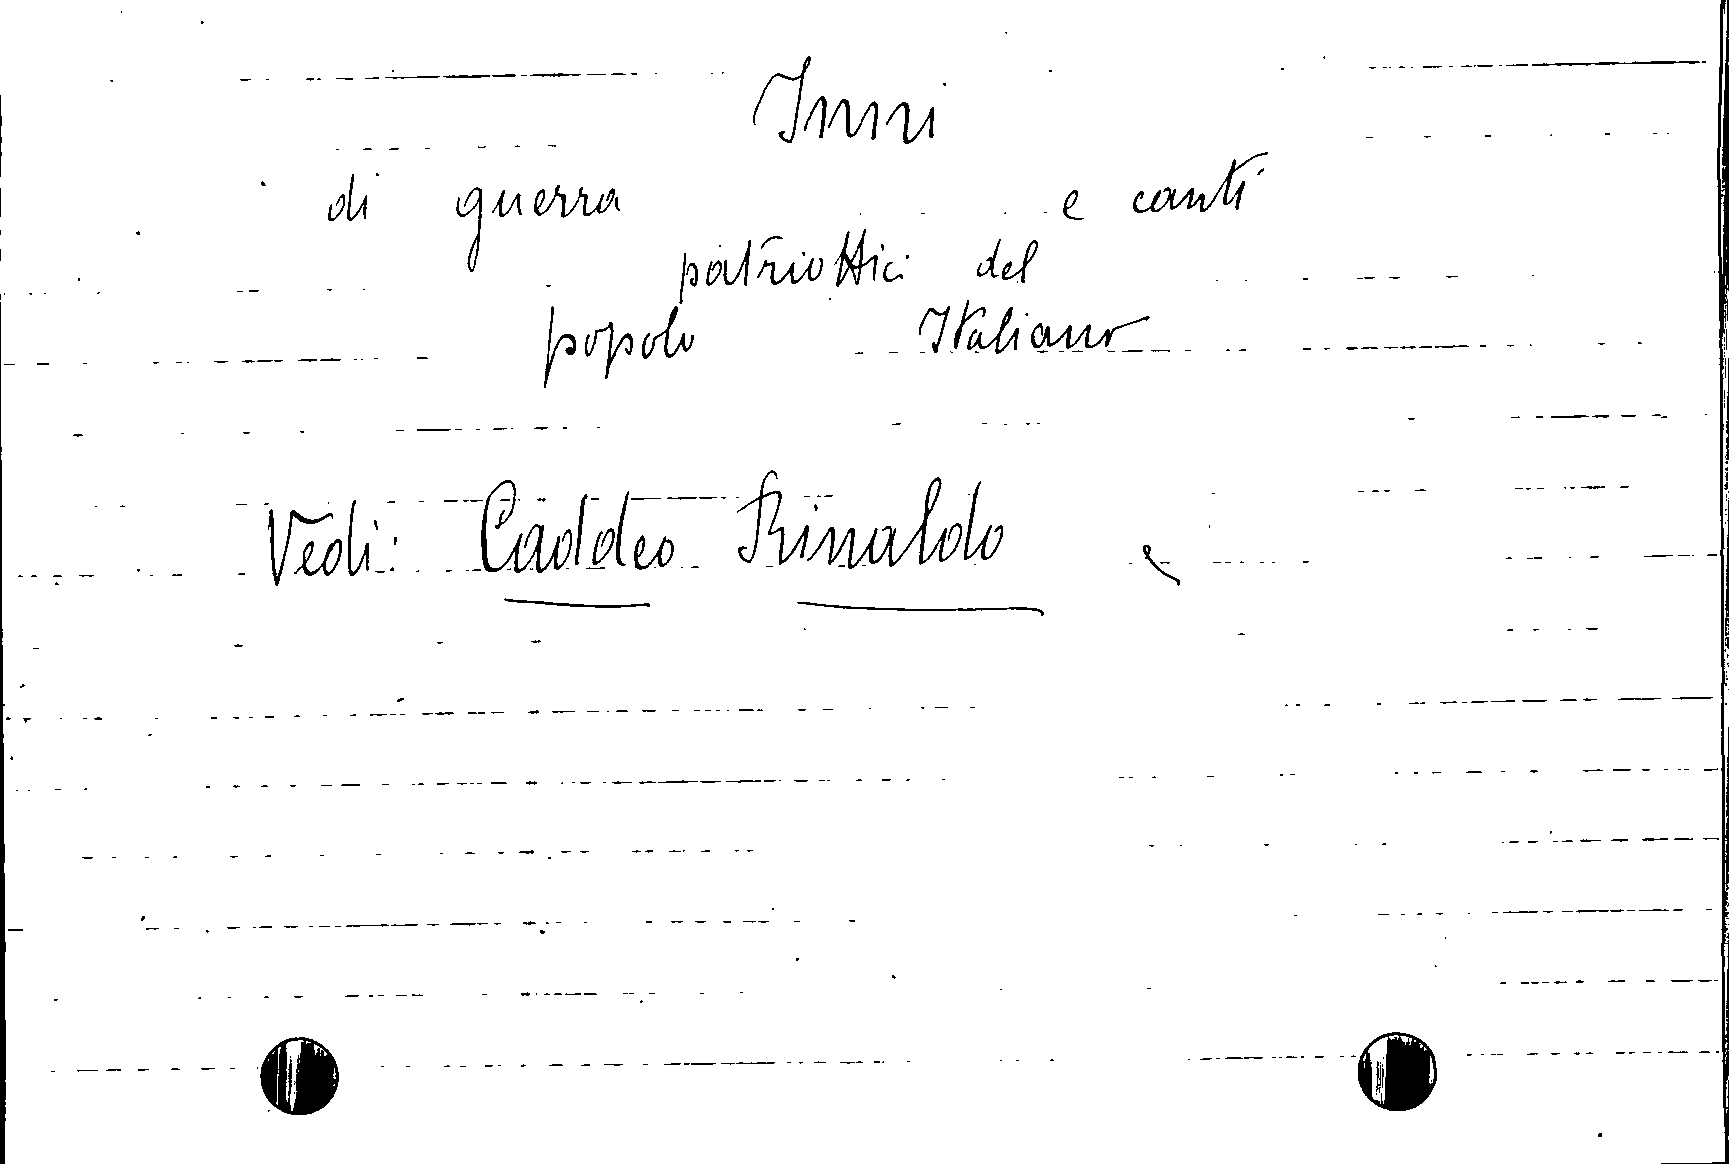 Inni
di guerra e canti
patriottici del
popolo Italiano
Vedi: Caddeo Rinaldo e